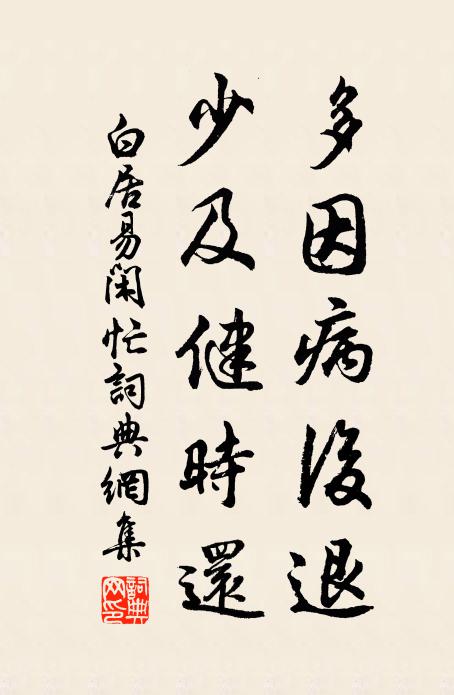 多因病後退
少及健時還
白居易閑忙詞典網集
詞典网印